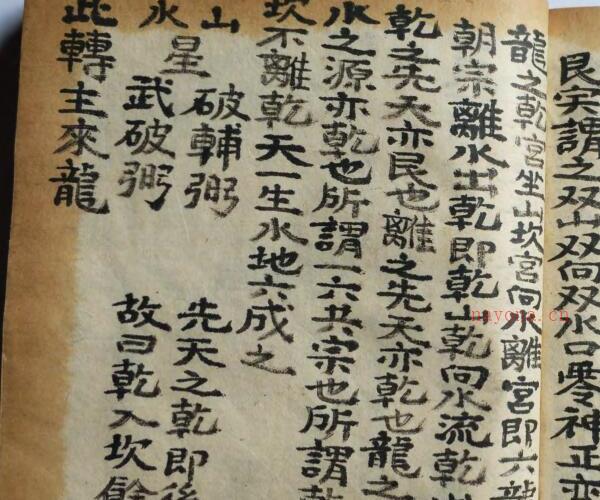 艮寅謂之双山双向双水口零神正
龍之乾宮坐山坎宮向水離宮即六龍
朝宗離水出乾即乾山乾向水流乾
乾之先天亦艮也離之先天亦乾也龍之
水之源亦乾也所謂一六共宗也所謂
坎不離乾天一生水地六成之
山 破輔弼 先天之乾即後
水星 武破弼 故曰乾入坎
此轉主來龍
nayona.cn